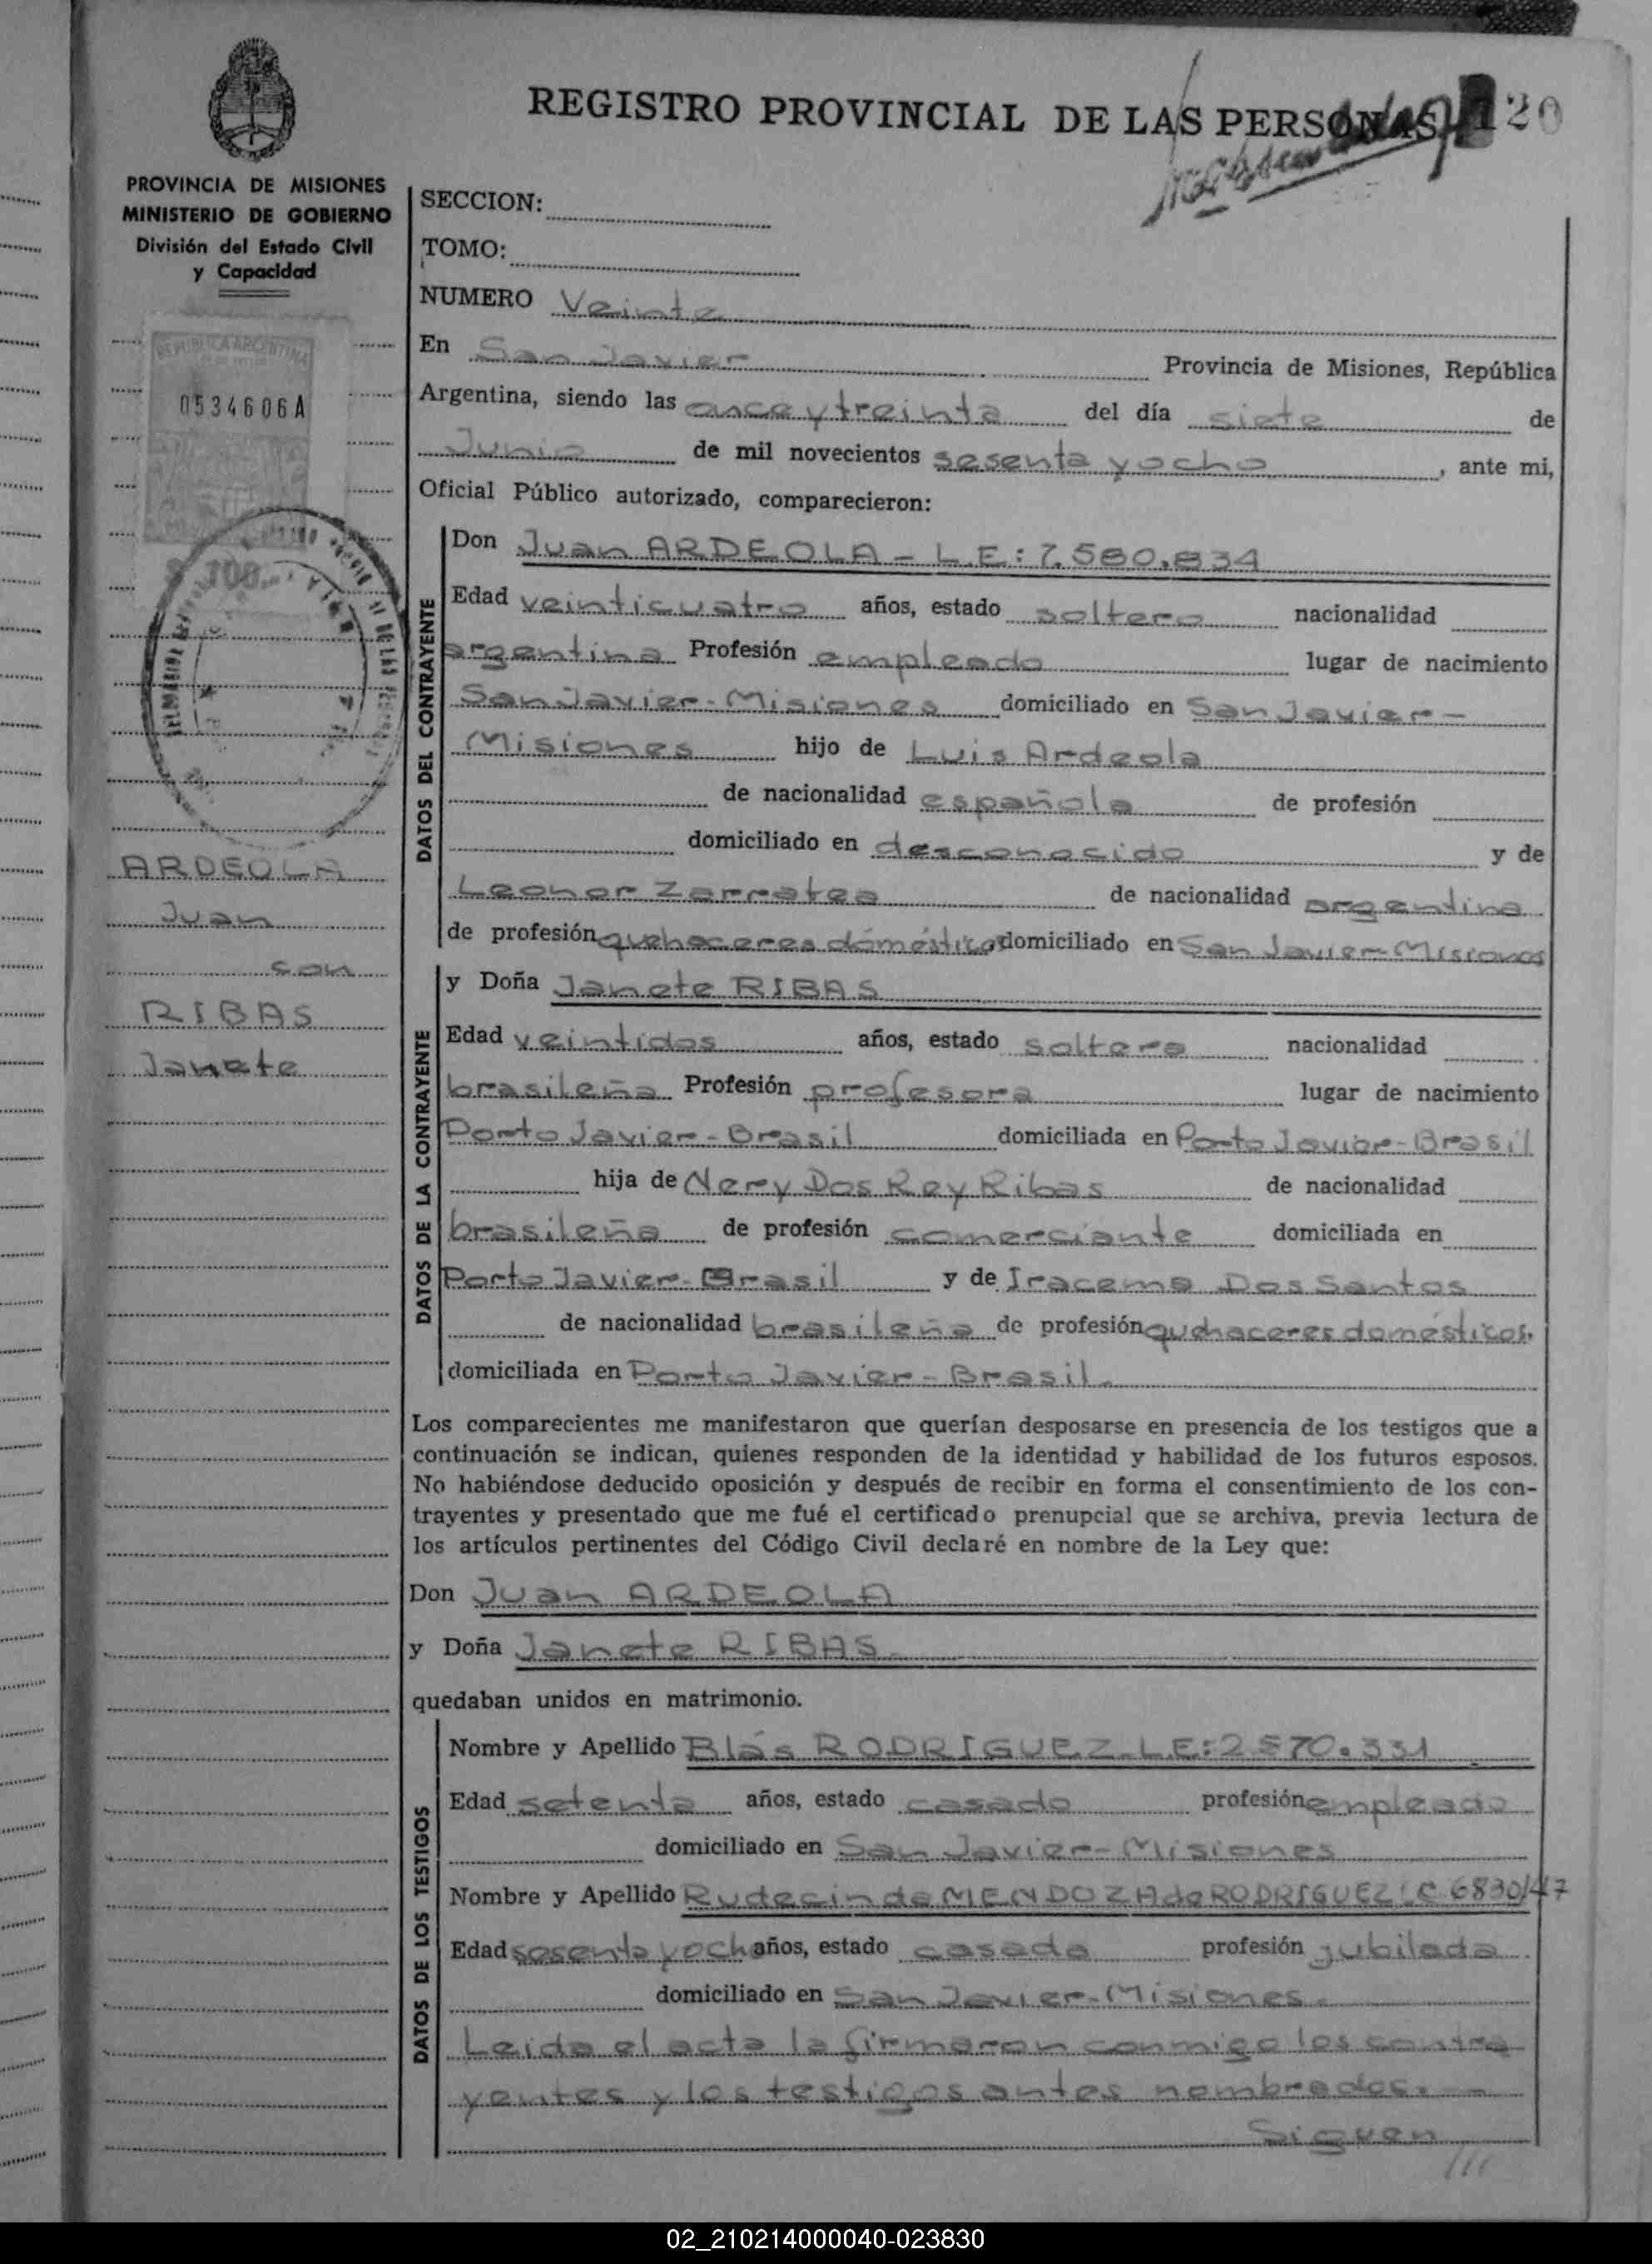 REGISTRO PROVINCIAL DE LAS PERSONAS 20
PROVINCIA DE MISIONES
MINISTERIO DE GOBIERNO
División del Estado Civil
y Capacidad
REPUBLICA ARGENTINA
0534606A
$ 100.-
ARDEOLA
Juan
con
RIBAS
Janete
SECCION:
TOMO:
NUMERO Veinte
En San Javier Provincia de Misiones, República
Argentina, siendo las once y treinta del día siete de
Junio de mil novecientos sesenta y ocho, ante mi,
Oficial Público autorizado, comparecieron:
DATOS DEL CONTRAYENTE
Don Juan ARDEOLA - L.E: 7.580.834
Edad veinticuatro años, estado soltero nacionalidad
argentina Profesión empleado lugar de nacimiento
San Javier - Misiones domiciliado en San Javier -
Misiones hijo de Luis Ardeola
de nacionalidad española de profesión
domiciliado en desconocido y de
Leonor Zarratea de nacionalidad argentina
de profesión quehaceres domésticos domiciliado en San Javier - Misiones
DATOS DE LA CONTRAYENTE
y Doña Janete RIBAS
Edad veintidos años, estado soltera nacionalidad
brasileña Profesión profesora lugar de nacimiento
Porto Javier - Brasil domiciliada en Porto Javier - Brasil
hija de Nery Dos Rey Ribas de nacionalidad
brasileña de profesión comerciante domiciliada en
Porto Javier - Brasil y de Iracema Dos Santos
de nacionalidad brasileña de profesión quehaceres domésticos.
domiciliada en Porto Javier - Brasil.
Los comparecientes me manifestaron que querían desposarse en presencia de los testigos que a
continuación se indican, quienes responden de la identidad y habilidad de los futuros esposos.
No habiéndose deducido oposición y después de recibir en forma el consentimiento de los con-
trayentes y presentado que me fué el certificado prenupcial que se archiva, previa lectura de
los artículos pertinentes del Código Civil declaré en nombre de la Ley que:
Don Juan ARDEOLA
y Doña Janete RIBAS
quedaban unidos en matrimonio.
DATOS DE LOS TESTIGOS
Nombre y Apellido Blás RODRIGUEZ L.E: 2570.331
Edad setenta años, estado casado profesión empleado
domiciliado en San Javier - Misiones
Nombre y Apellido Rudecinda MENDOZA de RODRIGUEZ L C 6830147
Edad sesenta y ocho años, estado casada profesión jubilada
domiciliado en San Javier - Misiones.
Leida el acta la firmaron conmigo los contra
yentes y los testigos antes nombrados. -
Siguen
///
02_210214000040-023830